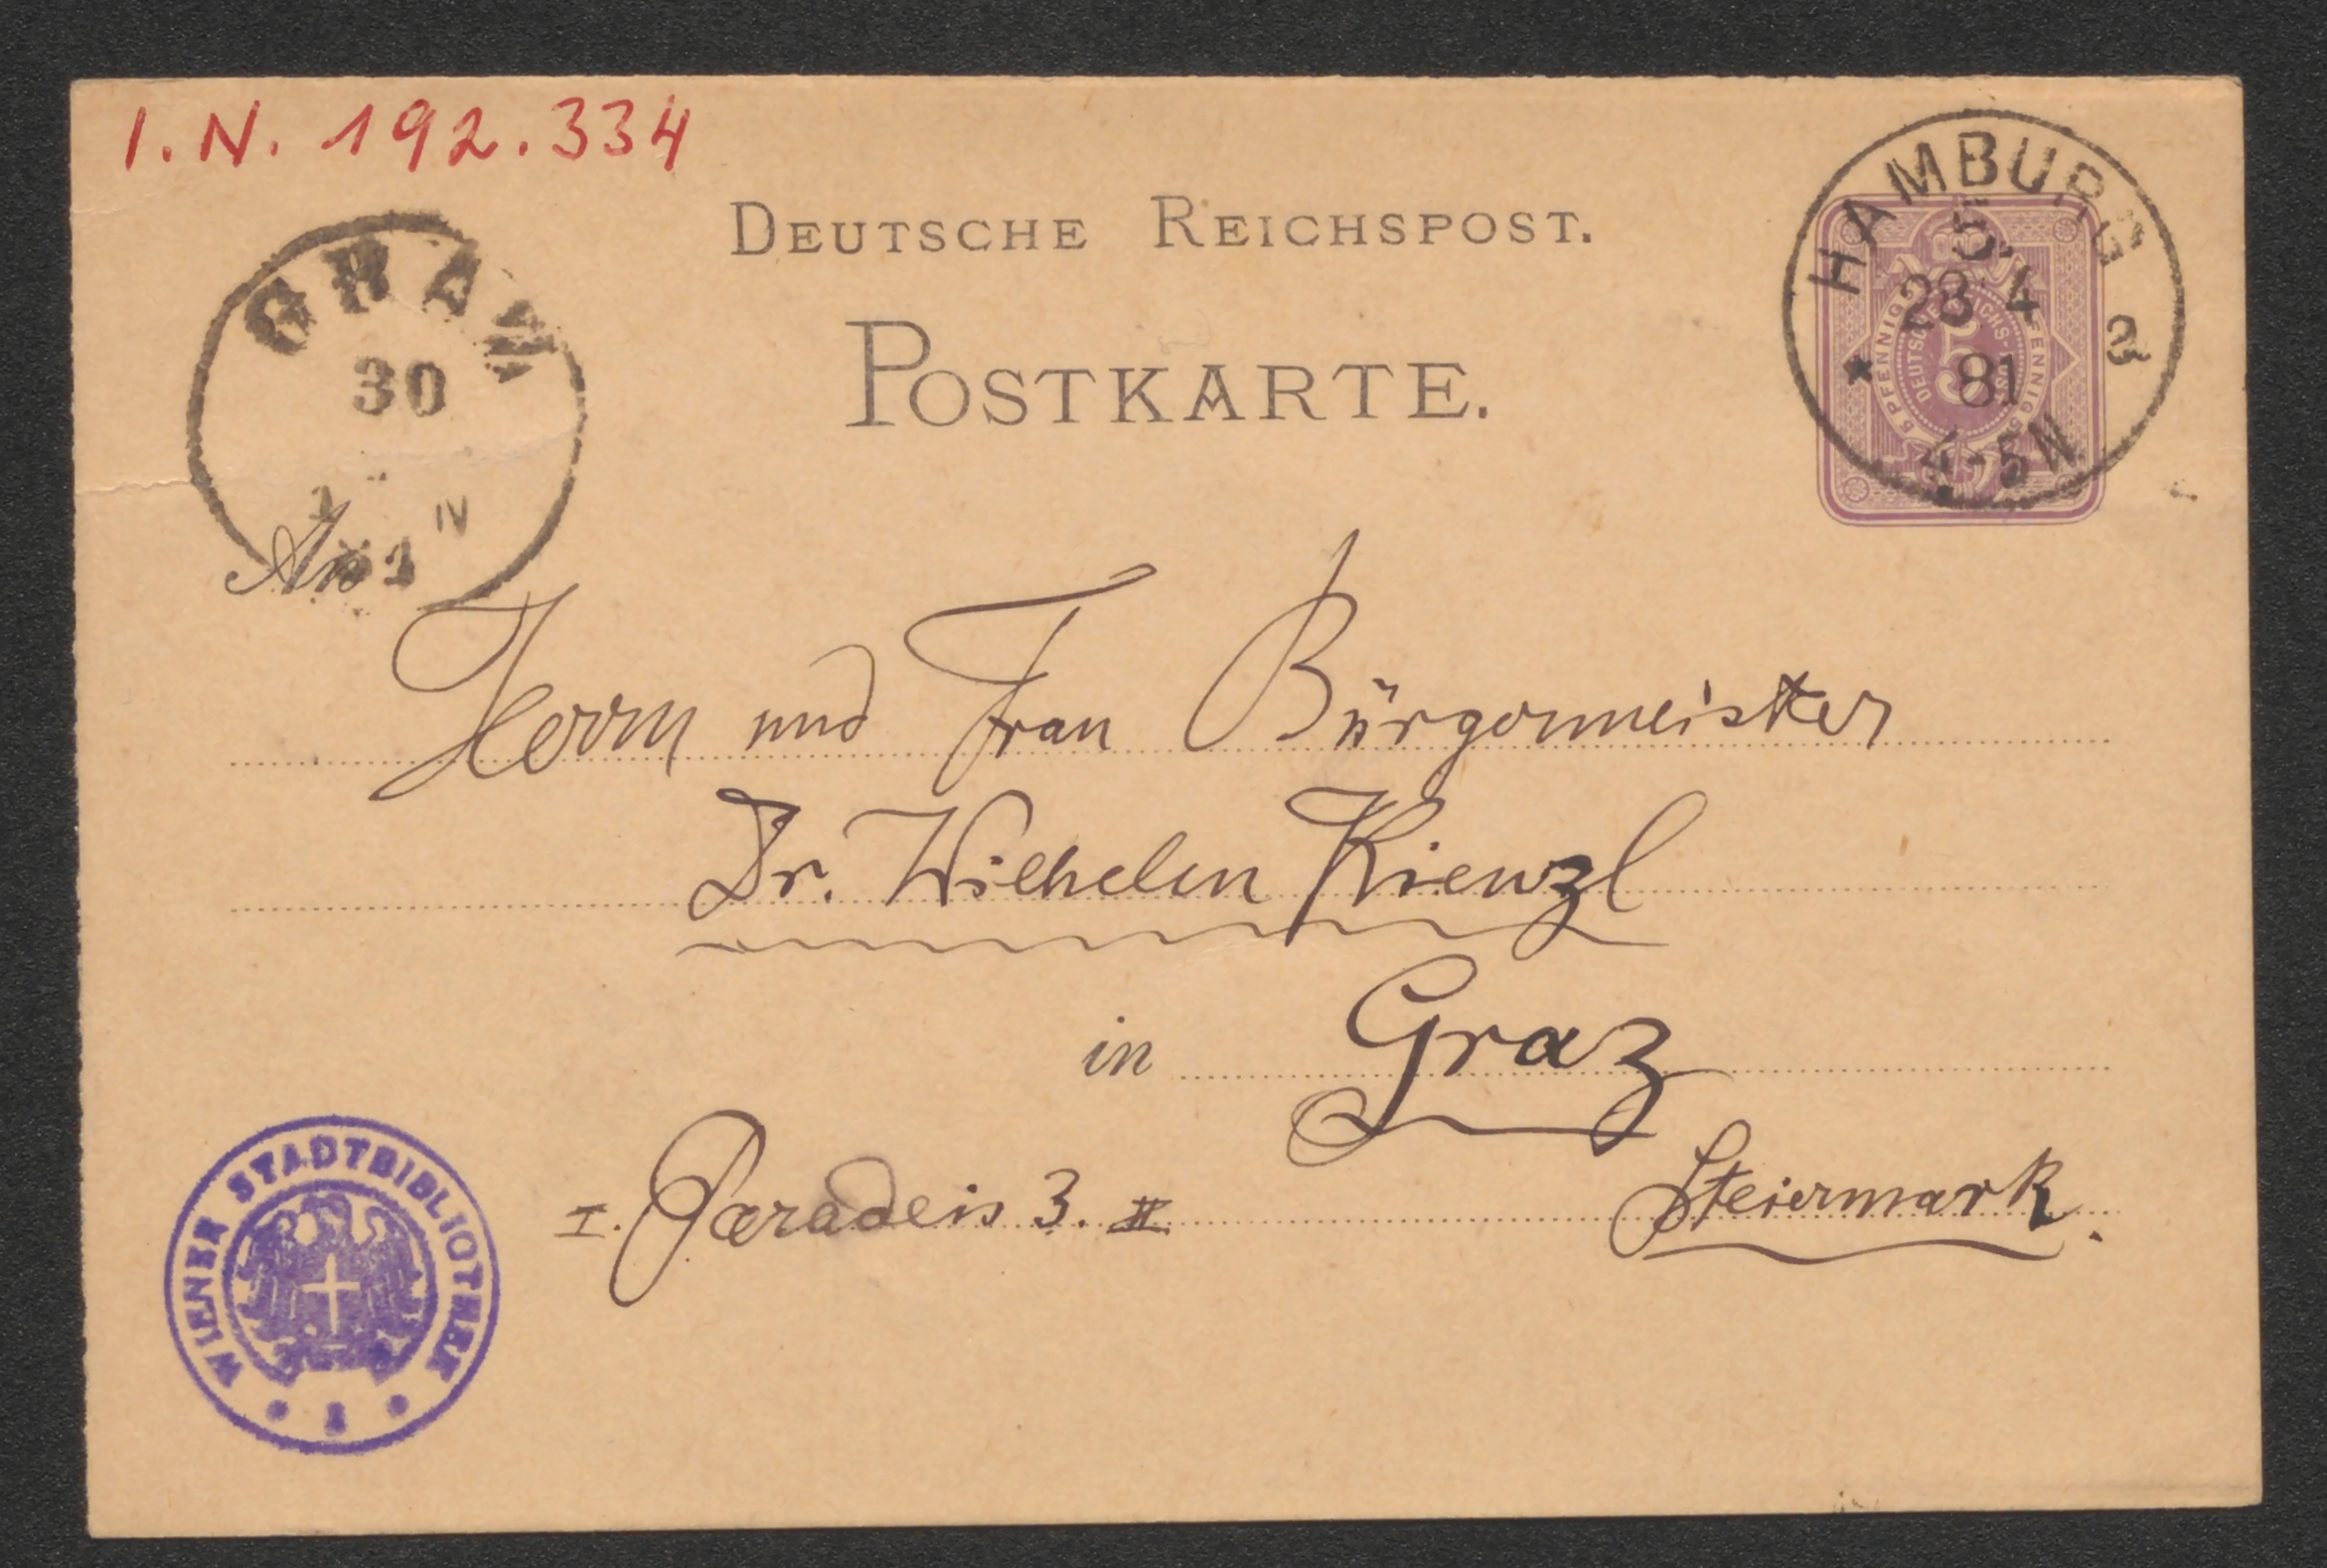 I.N. 192.334
DEUTSCHE REICHSPOST.
POSTKARTE.
GRAZ
30
IV
HAMBURG
5.
28 4
81
4-5N
* 3
5 PFENNIG
5
An
Herrn und Frau Bürgermeister
Dr. Wilhelm Kienzl
in Graz
I. Paradeis 3. II.
Steiermark.
WIENER STADTBIBLIOTHEK
* 1 *